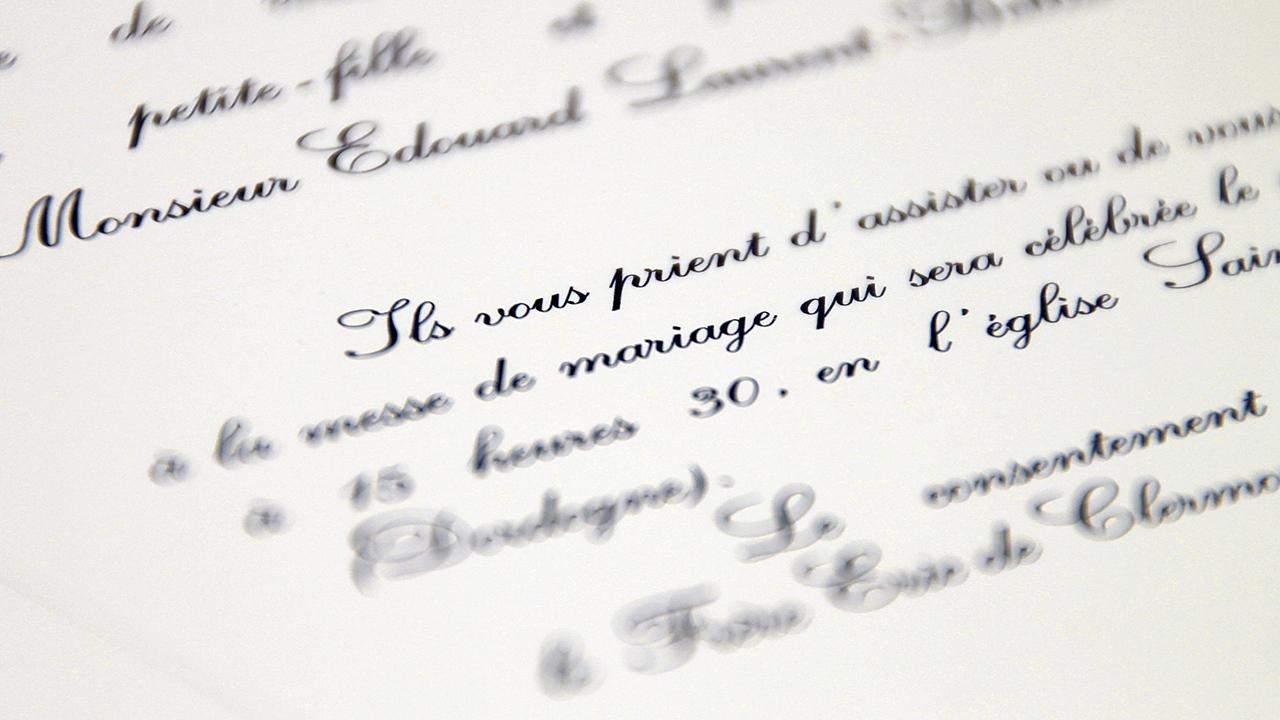 de
petite-fille et
Monsieur Edouard Laurent-
Ils vous prient d'assister ou de vous
à la messe de mariage qui sera célébrée le
à 15 heures 30, en l'église
(Dordogne).
Le consentement
le Frère Eric de